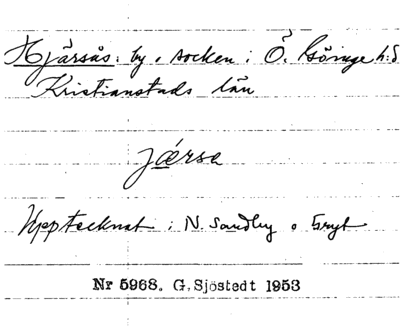 Hjärsås: by o socken i Ö. Göinge h:d
Kristianstads län
jǽrsa
Upptecknat i N. Sandby o Gryt
Nr 5968. G. Sjöstedt 1953